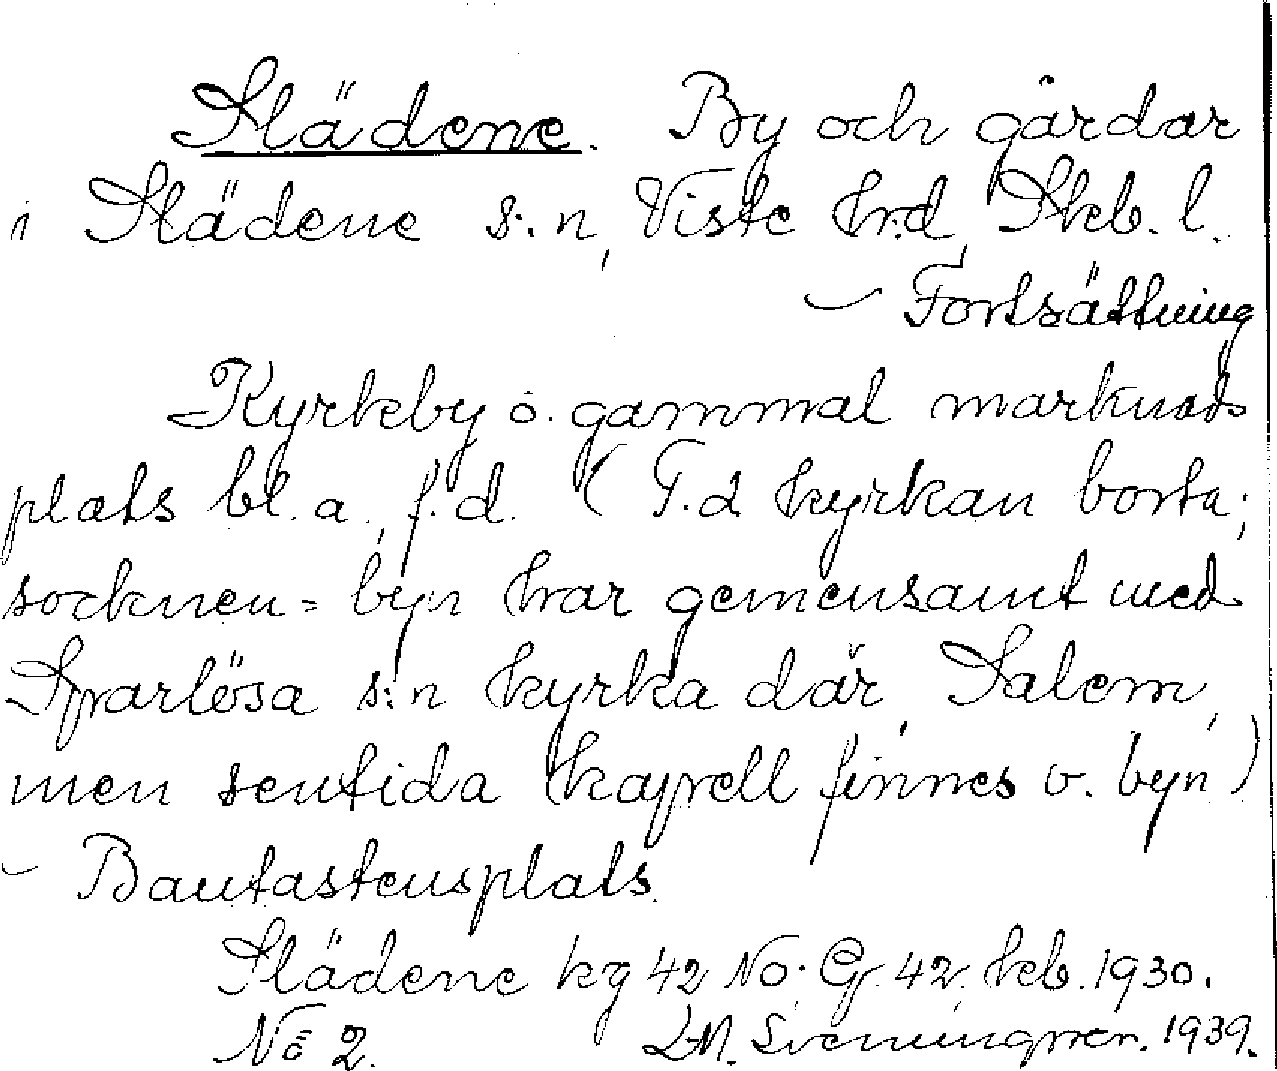 Slädene. By och gårdar
i Slädene s:n, Viste hrd, Skb. l.
– Fortsättning
Kyrkby o. gammal marknads
plats bl. a., f. d. (F. d. kyrkan borta;
socknen = byn har gemensamt med
Sparlösa s:n kyrka där, Salem,
men sentida kapell finnes v. byn)
– Bautastensplats.
Slädene kg 42 NO. G. 42. kb. 1930.
No 2. L. M. Svenungsson. 1939.